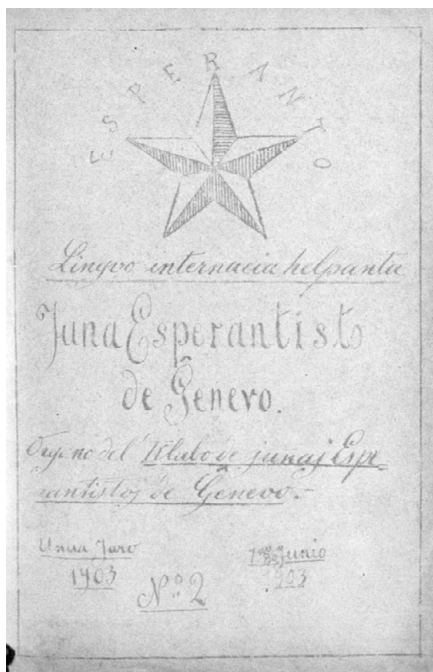 ESPERANTO
Lingvo internacia helpanta
Juna Esperantisto
de Ĝenevo.
Organo del' Klubo de junaj Espe-
rantistoj de Ĝenevo.-
Unua Jaro
1903
Nº 2
Junio
1903